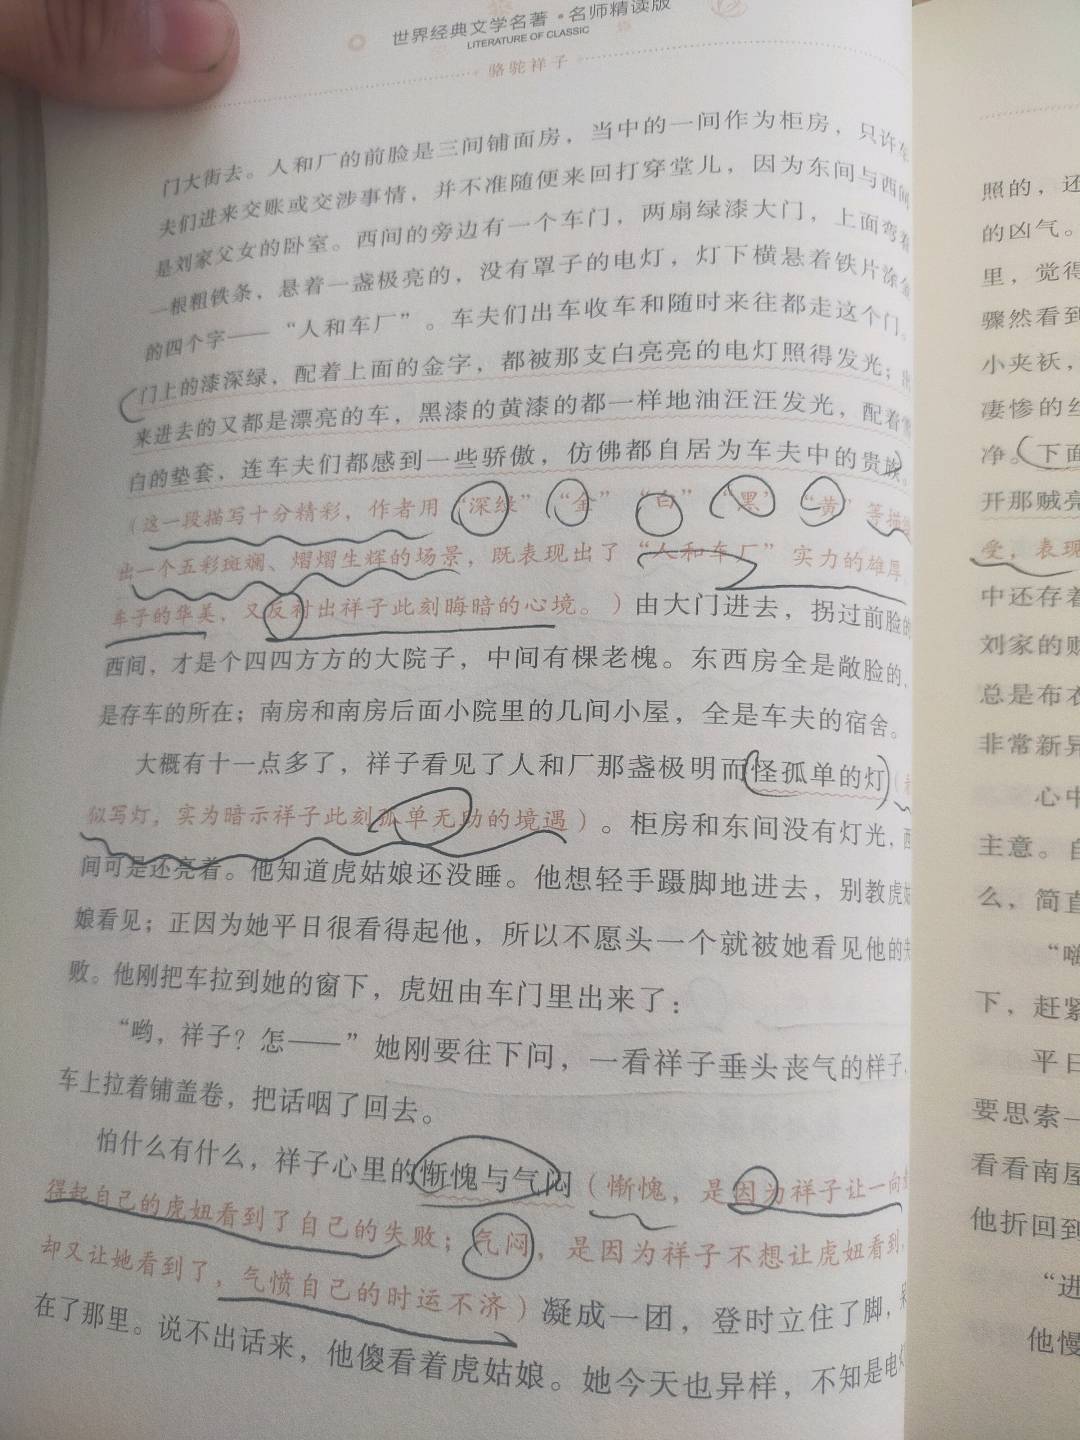 世界经典文学名著·名师精读版
LITERATURE OF CLASSIC
骆驼祥子
门大街去。人和厂的前脸是三间铺面房，当中的一间作为柜房，只许车
夫们进来交账或交涉事情，并不准随便来回打穿堂儿，因为东间与西间
是刘家父女的卧室。西间的旁边有一个车门，两扇绿漆大门，上面弯着
一根粗铁条，悬着一盏极亮的，没有罩子的电灯，灯下横悬着铁片涂金
的四个字——“人和车厂”。车夫们出车收车和随时来往都走这个门。
门上的漆深绿，配着上面的金字，都被那支白亮亮的电灯照得发光；出
来进去的又都是漂亮的车，黑漆的黄漆的都一样地油汪汪发光，配着雪
白的垫套，连车夫们都感到一些骄傲，仿佛都自居为车夫中的贵族。
（这一段描写十分精彩，作者用“深绿”“金”“白”“黑”“黄”等描绘
出一个五彩斑斓、熠熠生辉的场景，既表现出了“人和车厂”实力的雄厚
车子的华美，又反衬出祥子此刻晦暗的心境。）由大门进去，拐过前脸的
西间，才是个四四方方的大院子，中间有棵老槐。东西房全是敞脸的，
是存车的所在；南房和南房后面小院里的几间小屋，全是车夫的宿舍。
大概有十一点多了，祥子看见了人和厂那盏极明而怪孤单的灯（看
似写灯，实为暗示祥子此刻孤单无助的境遇）。柜房和东间没有灯光，西
间可是还亮着。他知道虎姑娘还没睡。他想轻手蹑脚地进去，别教虎姑
娘看见；正因为她平日很看得起他，所以不愿头一个就被她看见他的失
败。他刚把车拉到她的窗下，虎妞由车门里出来了：
“哟，祥子？怎——”她刚要往下问，一看祥子垂头丧气的样子，
车上拉着铺盖卷，把话咽了回去。
怕什么有什么，祥子心里的惭愧与气闷（惭愧，是因为祥子让一向
得起自己的虎妞看到了自己的失败；气闷，是因为祥子不想让虎妞看到，
却又让她看到了，气愤自己的时运不济）凝成一团，登时立住了脚，
在了那里。说不出话来，他傻看着虎姑娘。她今天也异样，不知是电灯
照的，还
的凶气。
里，觉得
骤然看到
小夹袄，
凄惨的
净。下面
开那贼亮
受，表现
中还存着
刘家的
总是布衣
非常新异
心中
主意。自
么，简直
“嗨
下，赶紧
平日
要思索
看看南屋
他折回到
“进
他慢